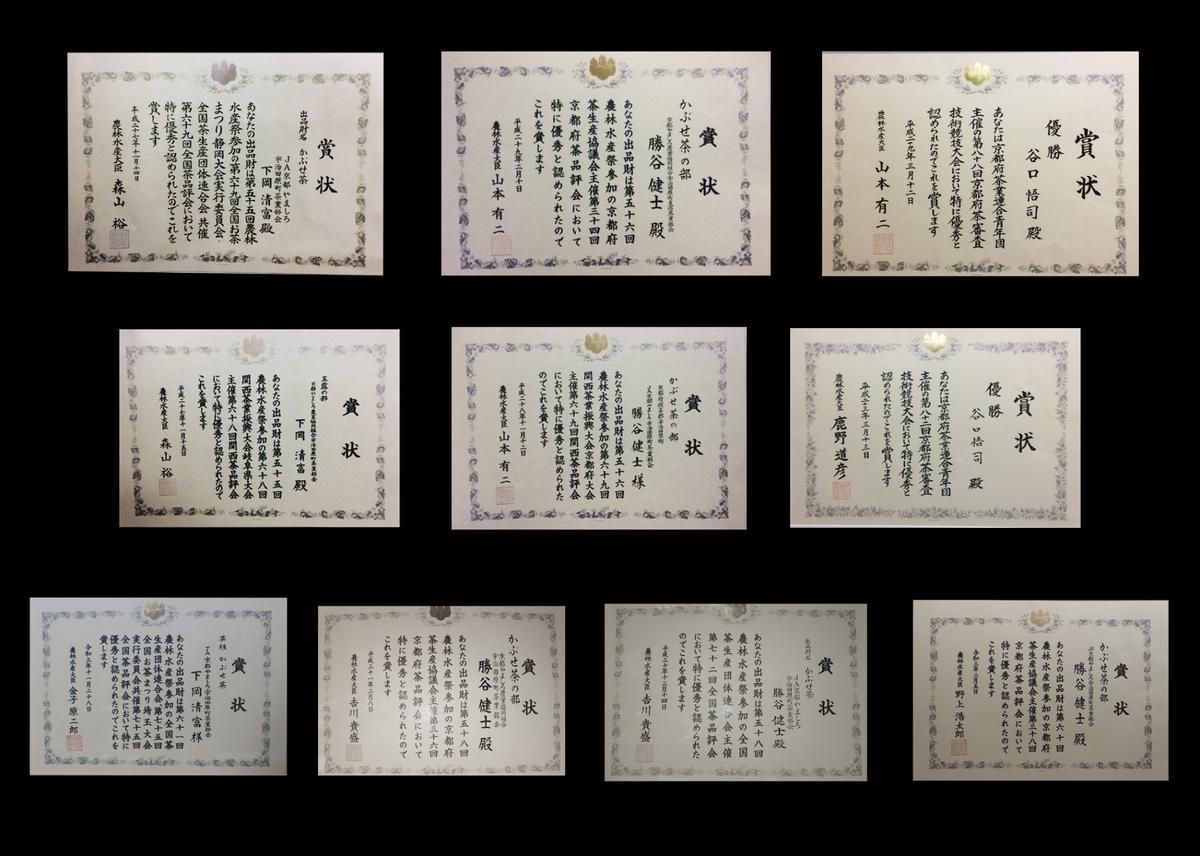 賞状
出品財名 かぶせ茶
JA京都やましろ
宇治田原町茶業部会
下岡 清富 殿
あなたの出品財は第五十五回農林
水産祭参加の第六十九回全国お茶
まつり静岡大会実行委員会
全国茶生産団体連合会 共催
第六十九回全国茶品評会において
特に優秀と認められたのでこれを
賞します
平成二十七年十一月十四日
農林水産大臣 森山 裕
賞状
かぶせ茶の部
勝谷 健士 殿
あなたの出品財は第五十六回
農林水産祭参加の京都府
茶生産協議会主催第三十四回
京都府茶品評会において
特に優秀と認められたので
これを賞します
平成二十九年二月十日
農林水産大臣 山本 有二
賞状
優勝
谷口 悟司 殿
あなたは京都府茶業連合青年団
主催の第八十八回京都府茶審査
技術競技大会において特に優秀と
認められたのでこれを賞します
平成二十九年三月十二日
農林水産大臣 山本 有二
賞状
玉露の部
下岡 清富 殿
あなたの出品財は第五十五回
農林水産祭参加の第六十八回
関西茶業振興大会岐阜県大会
主催第六十八回関西茶品評会
において特に優秀と認められたので
これを賞します
平成二十七年十一月十五日
農林水産大臣 森山 裕
賞状
かぶせ茶の部
勝谷 健士 様
あなたの出品財は第五十六回
農林水産祭参加の第六十九回
関西茶業振興大会京都府大会
主催第六十九回関西茶品評会
において特に優秀と認められた
のでこれを賞します
平成二十八年十一月十二日
農林水産大臣 山本 有二
賞状
優勝
谷口 悟司 殿
あなたは京都府茶業連合青年団
主催の第八十二回京都府茶審査
技術競技大会において特に優秀と
認められたのでこれを賞します
平成二十三年三月十三日
農林水産大臣 鹿野 道彦
賞状
茶種 かぶせ茶
JA京都やましろ宇治田原町茶業部会
下岡 清富 様
あなたの出品財は第六十一回
農林水産祭参加の全国茶
生産団体連合会第七十五回
全国お茶まつり埼玉大会
実行委員会共催第七十五回
全国茶品評会において特に
優秀と認められたのでこれを
賞します
農林水産大臣 金子 原二郎
賞状
かぶせ茶の部
勝谷 健士 殿
あなたの出品財は第五十八回
農林水産祭参加の京都府
茶生産協議会主催第三十六回
京都府茶品評会において
特に優秀と認められたので
これを賞します
平成三十一年二月八日
農林水産大臣 吉川 貴盛
賞状
出品財名 かぶせ茶
JA京都やましろ
宇治田原町茶業部会
勝谷 健士 殿
あなたの出品財は第五十八回
農林水産祭参加の全国
茶生産団体連合会主催
第七十二回全国茶品評会
において特に優秀と認められた
のでこれを賞します
農林水産大臣 吉川 貴盛
賞状
かぶせ茶の部
勝谷 健士 殿
あなたの出品財は第六十回
農林水産祭参加の京都府
茶生産協議会主催第三十八回
京都府茶品評会において
特に優秀と認められたので
これを賞します
農林水産大臣 野上 浩太郎